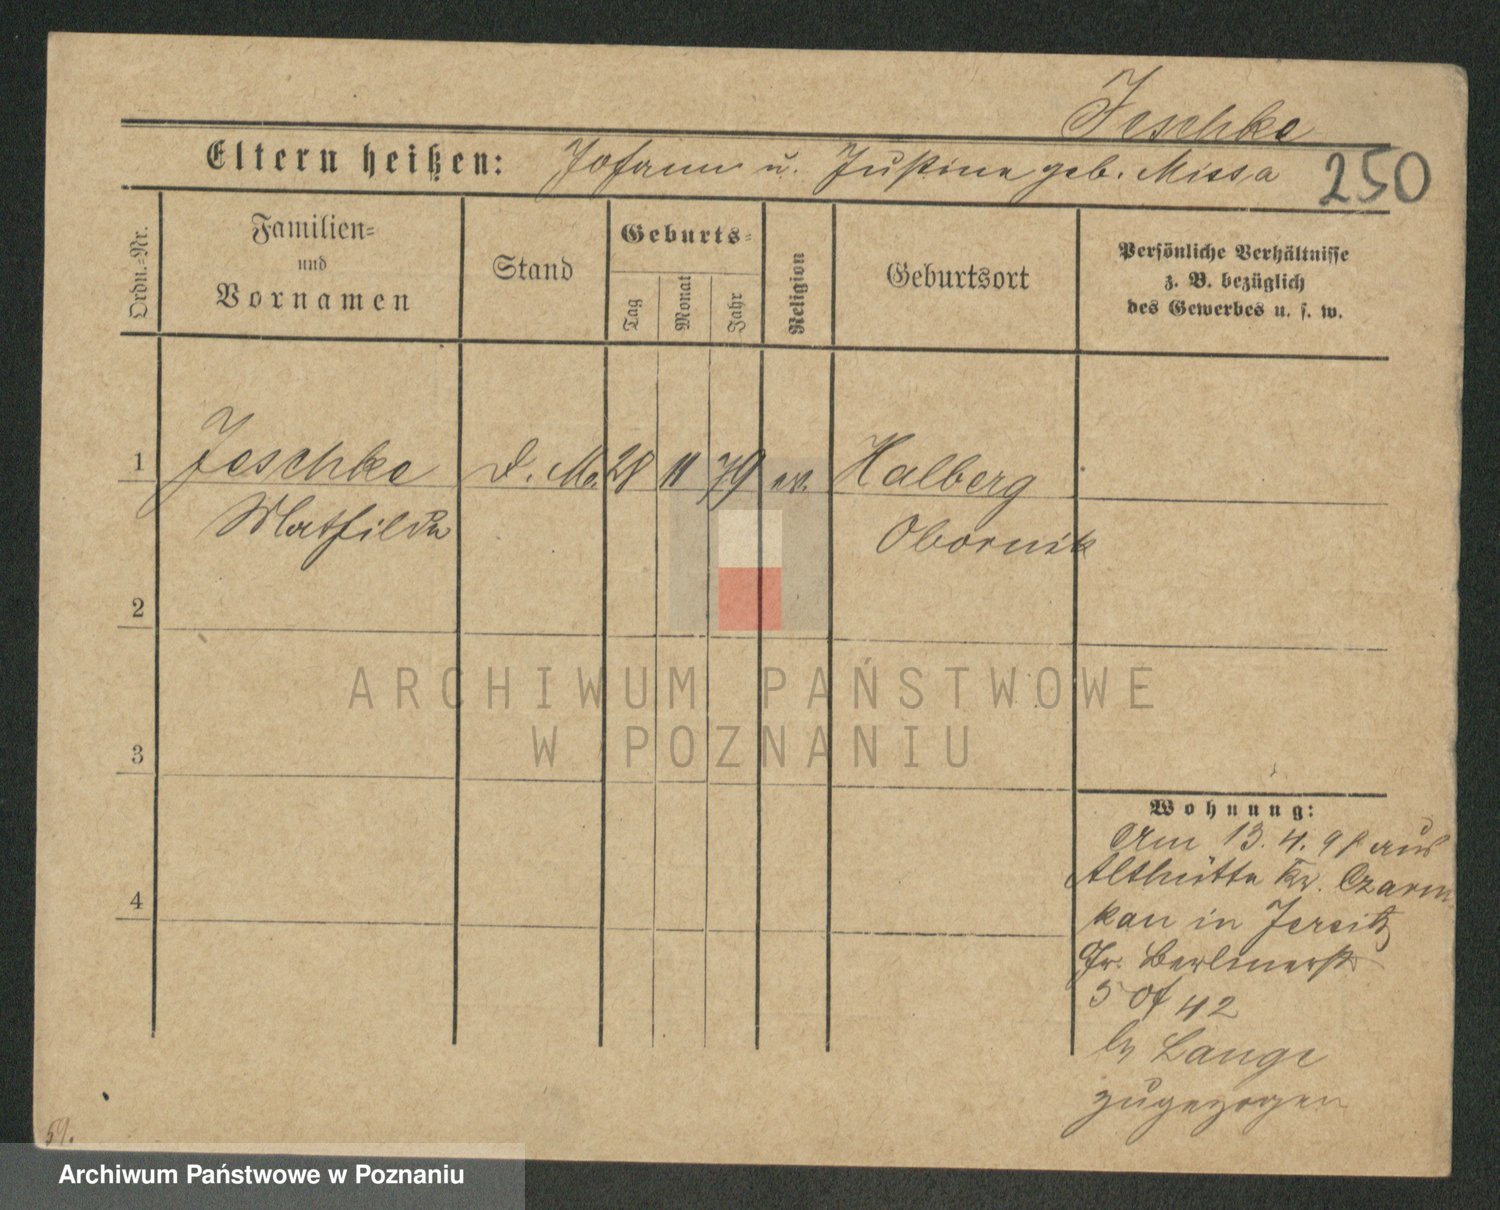 Jeschke
Eltern heißen: Johann u. Justine geb. Missa
250
Ordn.=Nr.
Familien=
und
Vornamen
Stand
Geburts=
Tag
Monat
Jahr
Religion
Geburtsort
Persönliche Verhältnisse
z. B. bezüglich
des Gewerbes u. s. w.
1 Jeschke D. M. 28 11 79 ev. Halberg
Mathilde Obornik
2
3
4
ARCHIWUM PAŃSTWOWE
W POZNANIU
Wohnung:
Am 13. 4. 98 aus
Althütte Kr. Czarni
kau in Jersitz
Gr. Berlinerstr
42
by Lange
zugezogen
59.
Archiwum Państwowe w Poznaniu